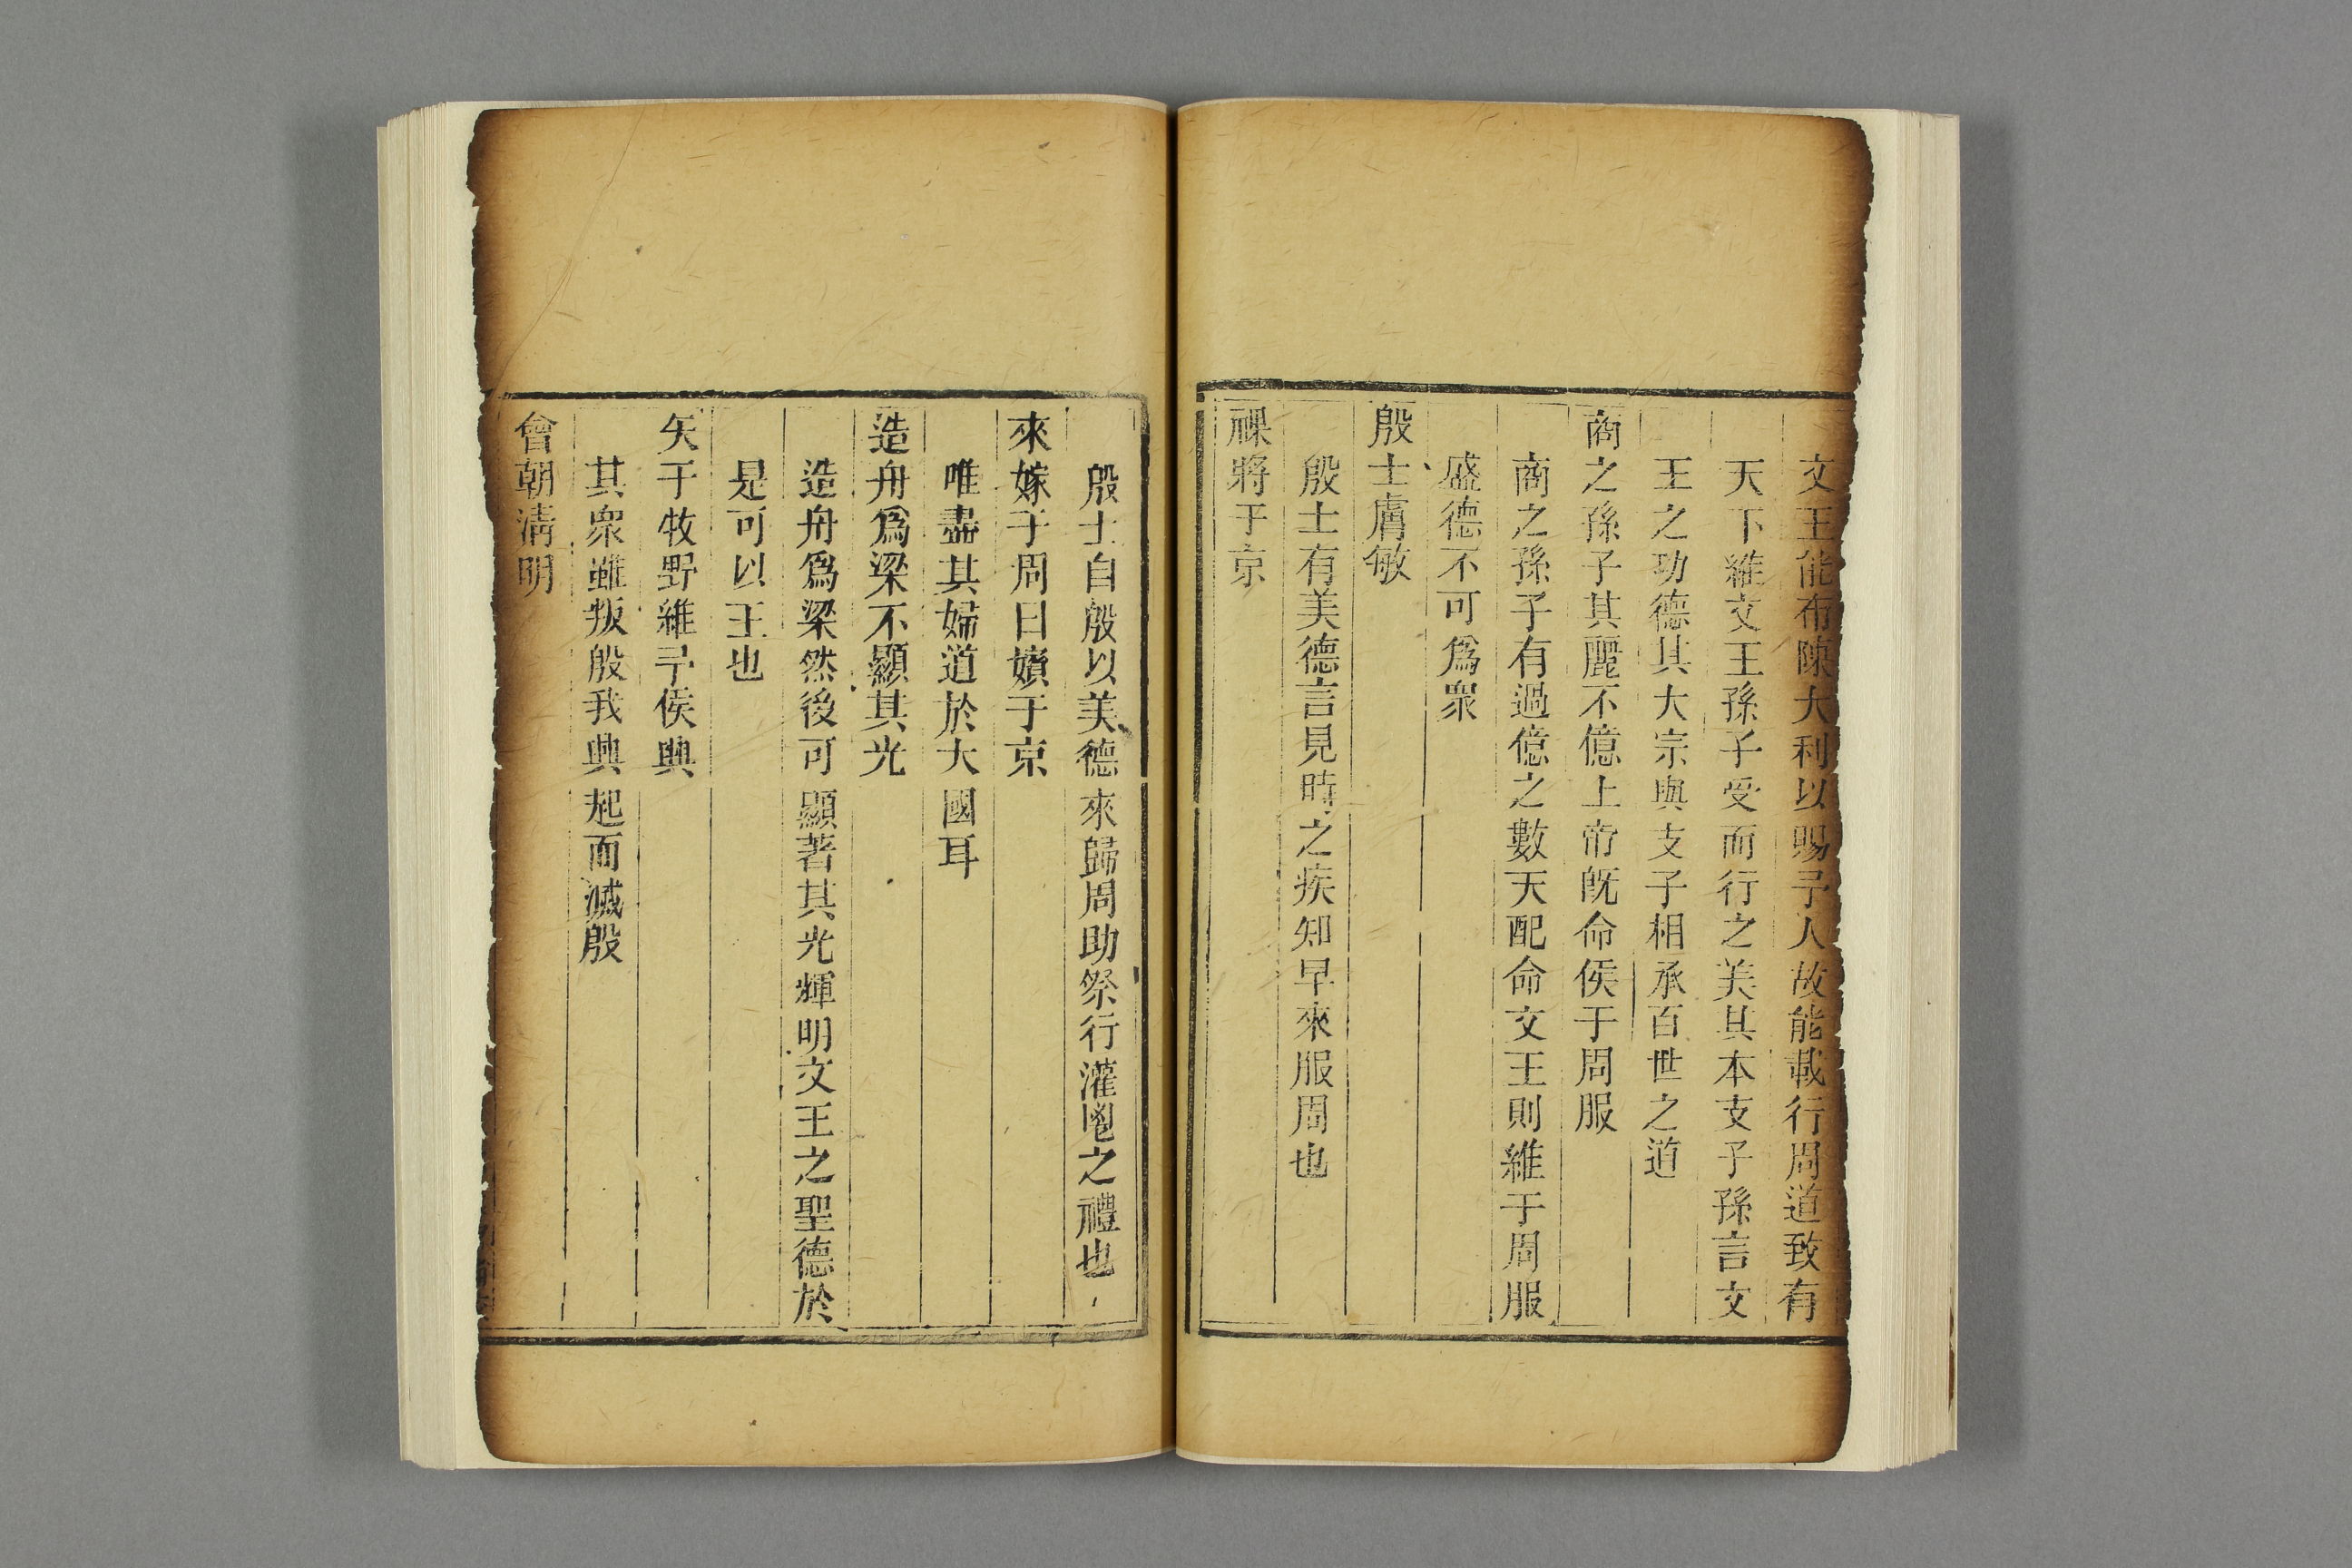 文王能布陳大利以賜予人故能載行周道致有
天下維文王孫子受而行之美其本支子孫言文
王之功德其大宗與支子相承百世之道
商之孫子其麗不億上帝旣命侯于周服
商之孫子有過億之數天配命文王則維于周服
盛德不可爲衆
殷士膚敏
殷士有美德言見時之疾知早來服周也
祼將于京
殷士自殷以美德來歸周助祭行灌鬯之禮也
來嫁于周曰嬪于京
唯盡其婦道於大國耳
造舟爲梁不顯其光
造舟爲梁然後可顯著其光輝明文王之聖德於
是可以王也
矢于牧野維予侯興
其衆雖叛殷我興起而滅殷
會朝淸明